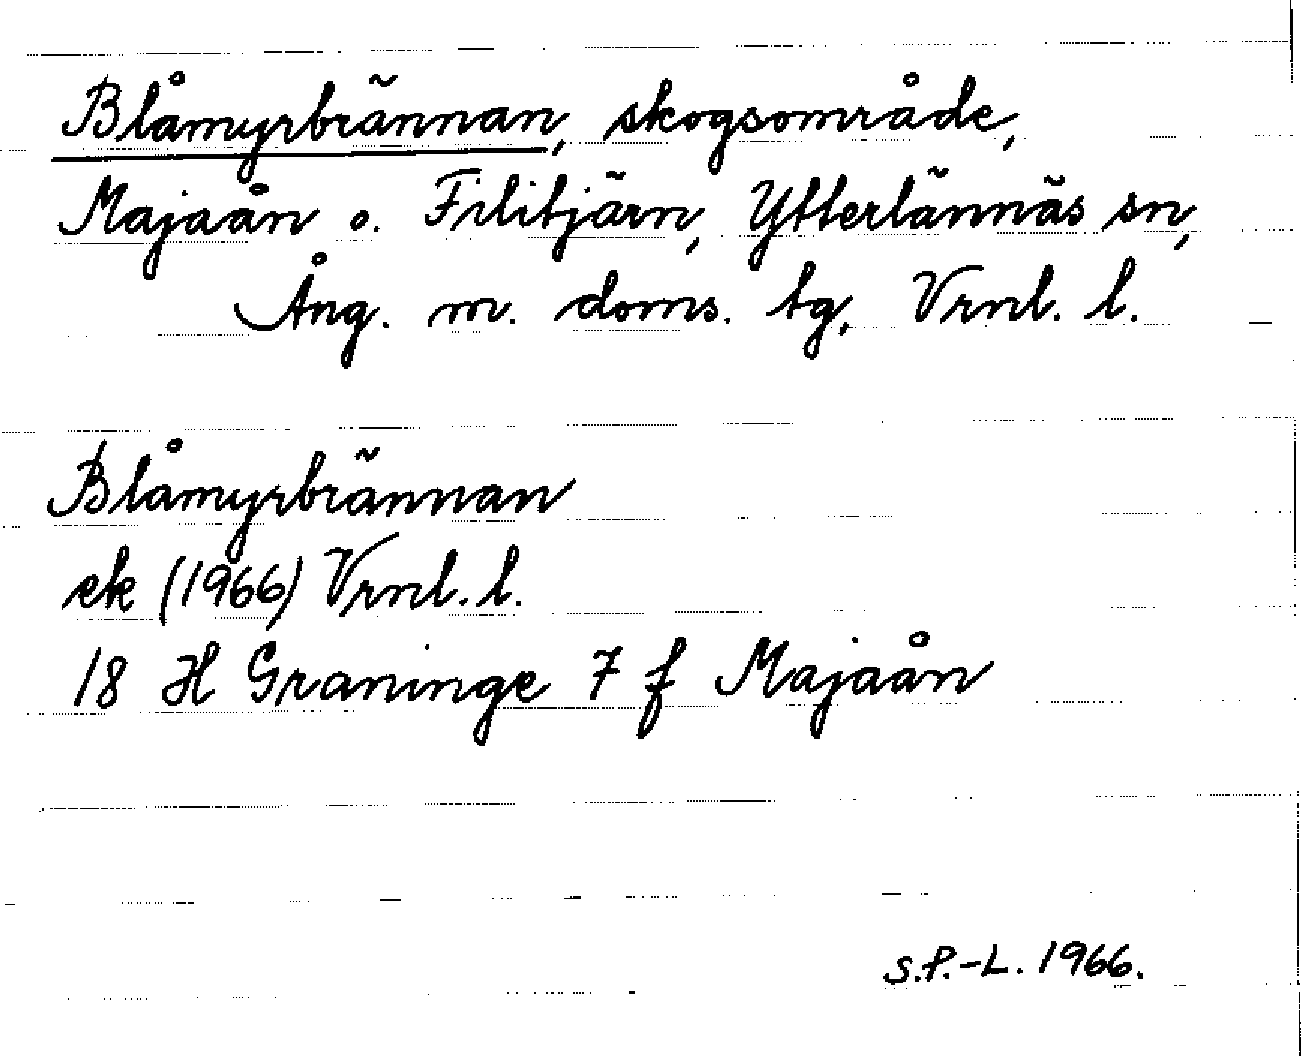 Blåmyrbrännan, skogsområde,
Majaån o. Filitjärn, Ytterlännäs sn,
Ång. m. doms. tg, Vrnl. l.
Blåmyrbrännan
ek (1966) Vrnl. l.
18 H Graninge 7 f Majaån
S.P.-L. 1966.